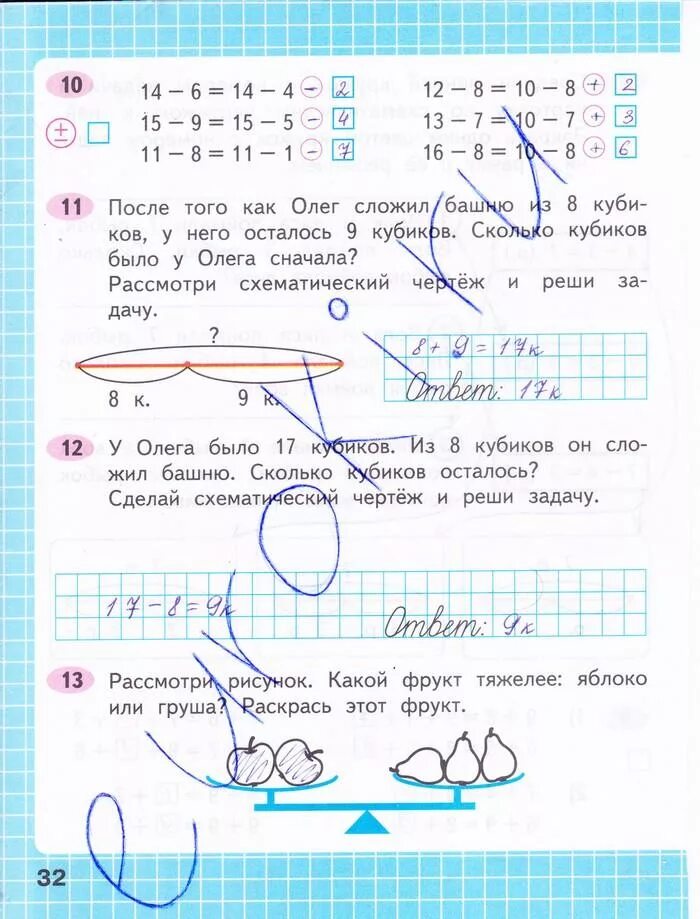 10
14 − 6 = 14 − 4 − 2
12 − 8 = 10 − 8 + 2
15 − 9 = 15 − 5 − 4
13 − 7 = 10 − 7 + 3
±
11 − 8 = 11 − 1 − 7
16 − 8 = 10 − 8 + 6
11 После того как Олег сложил башню из 8 куби-
ков, у него осталось 9 кубиков. Сколько кубиков
было у Олега сначала?
Рассмотри схематический чертёж и реши за-
дачу.
?
8 к. 9 к.
8 + 9 = 17к
Ответ: 17к
12 У Олега было 17 кубиков. Из 8 кубиков он сло-
жил башню. Сколько кубиков осталось?
Сделай схематический чертёж и реши задачу.
17 − 8 = 9к
Ответ: 9к
13 Рассмотри рисунок. Какой фрукт тяжелее: яблоко
или груша? Раскрась этот фрукт.
32